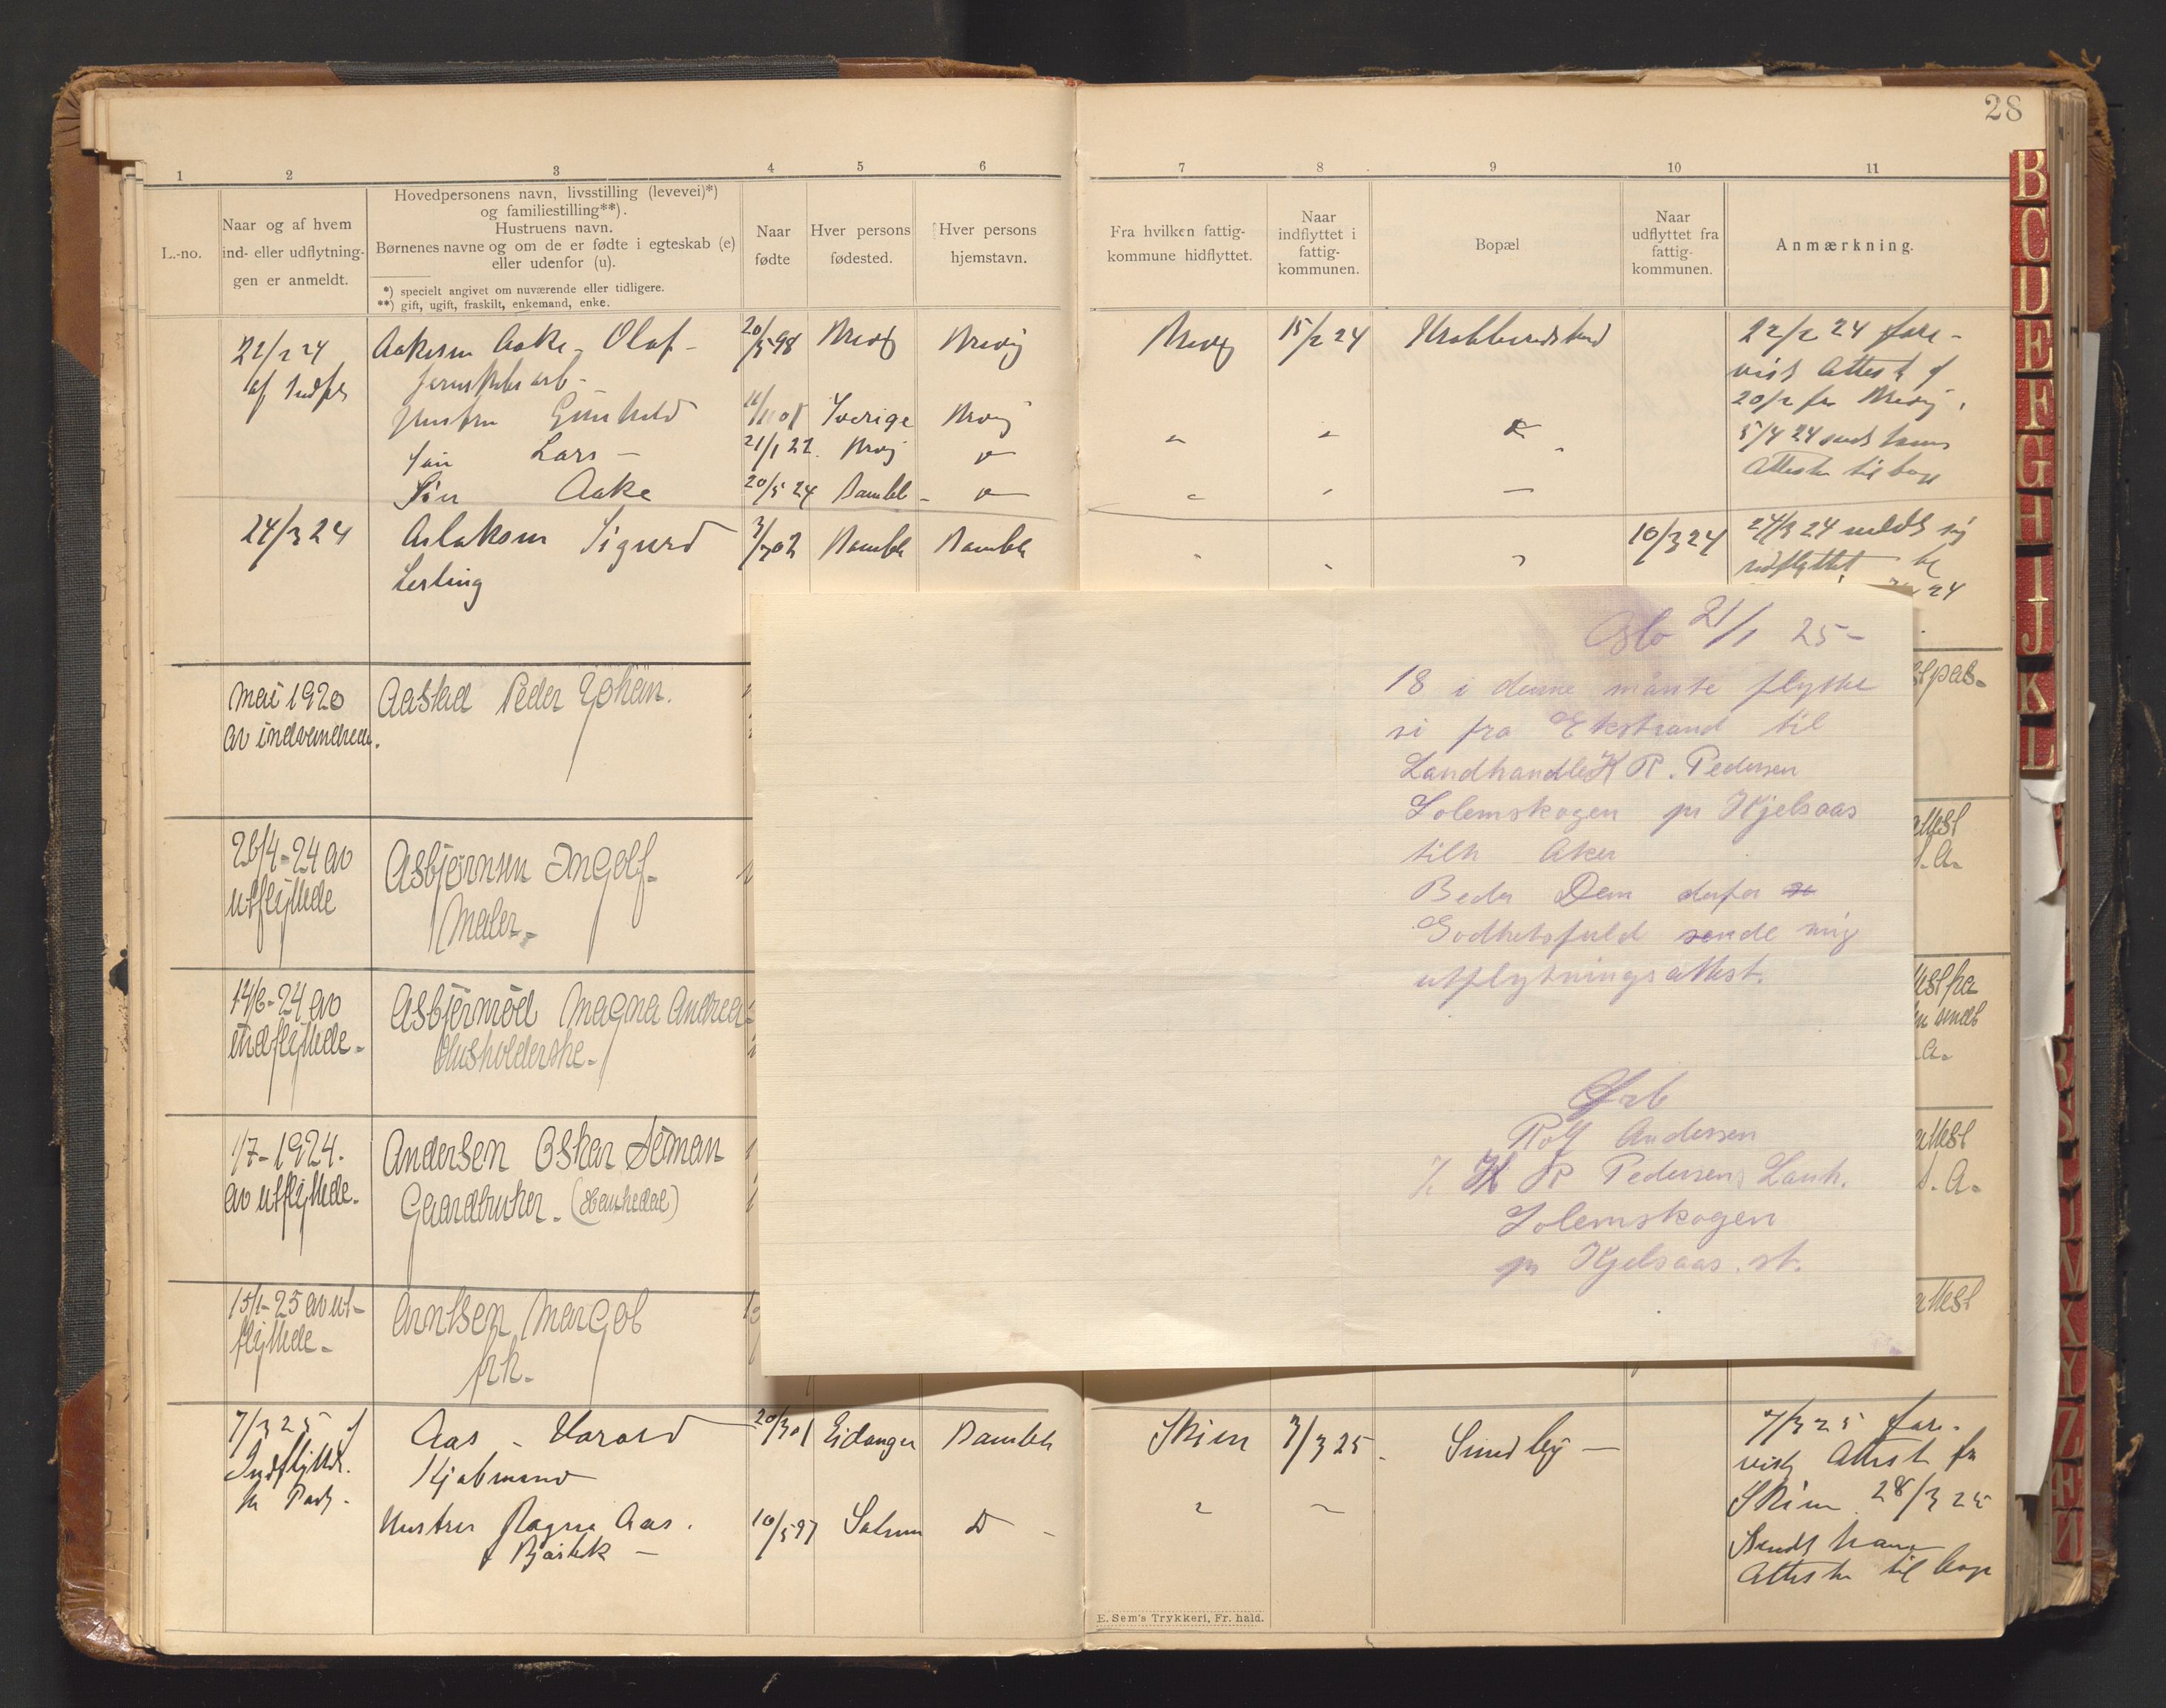 28
1 2 3 4 5 6 7 8 9 10 11
L.-no.
Naar og af hvem
ind- eller udflytnin-
gen er anmeldt.
Hovedpersonens navn, livsstilling (levevei)*)
og familiestilling**).
Hustruens navn.
Børnenes navne og om de er fødte i egteskab (e)
eller udenfor (u).
*) specielt angivet om nuværende eller tidligere.
**) gift, ugift, fraskilt, enkemand, enke.
Naar
fødte
Hver persons
fødested.
Hver persons
hjemstavn.
Fra hvilken fattig-
kommune hidflyttet.
Naar
indflyttet i
fattig-
kommunen.
Bopæl
Naar
udflyttet fra
fattig-
kommunen.
Anmærkning.
22/2 24
Aakesen Aake Olaf -
20/5 98 Brevig Brevig
Brevig 15/2 24
22/2 24 fore-
vist Attest af
20/2 fra Brevig.
5/4 24 sendt hans
Attester tilbage
Hustru Gunhild
Sverige Brevig
Søn Lars -
21/1 22
Søn Aake
20/5 24 Bamble -
24/3 24
Aslaksen Sigurd
Bamble Bamble
10/3 24
24/3 24 meldt sig
udflyttet
24
Mai 1920
av indvandrede.
Aastad Peder Johan.
26/4-24 av
utflyttede
Asbjørnsen Ingolf-
Maler-
14/6-24 av
indflyttede-
Asbjørnrød Magna Andrea-
Husholderske-
1/7-1924.
av utflyttede-
Andersen Oskar Seman
Gaardbruker. (Hanhedal)
15/1-25 av ut-
flyttede-
Arntsen Margot
frk.
7/3 25 af
Indflyttede.
Aas - Harald
Kjøbmand
20/3 01 Eidanger Bamble
Skien 3/3 25. Sundby -
7/3 25 fore-
vist Attest fra
Skien 28/3 25
Sendt hans
Attester tilbage
Hustru Ragna Aas.
10/5 97 Solum D -
E. Sem's Trykkeri, Fr. hald.
Oslo 21/1 25-
18 i denne månte flytte
vi fra Ekstrand til
Landhandler K R. Pedersen
Solemskogen pr Kjelsaas
tilh Aker
Beder Dem derfor
Godhetsfuld sende mig
utflytningsattest.
Ærb
Rolf Andersen
K R Pedersens Lanh.
Solemskogen
pr Kjelsaas. st.
B
C
D
E
F
G
H
I
J
K
L